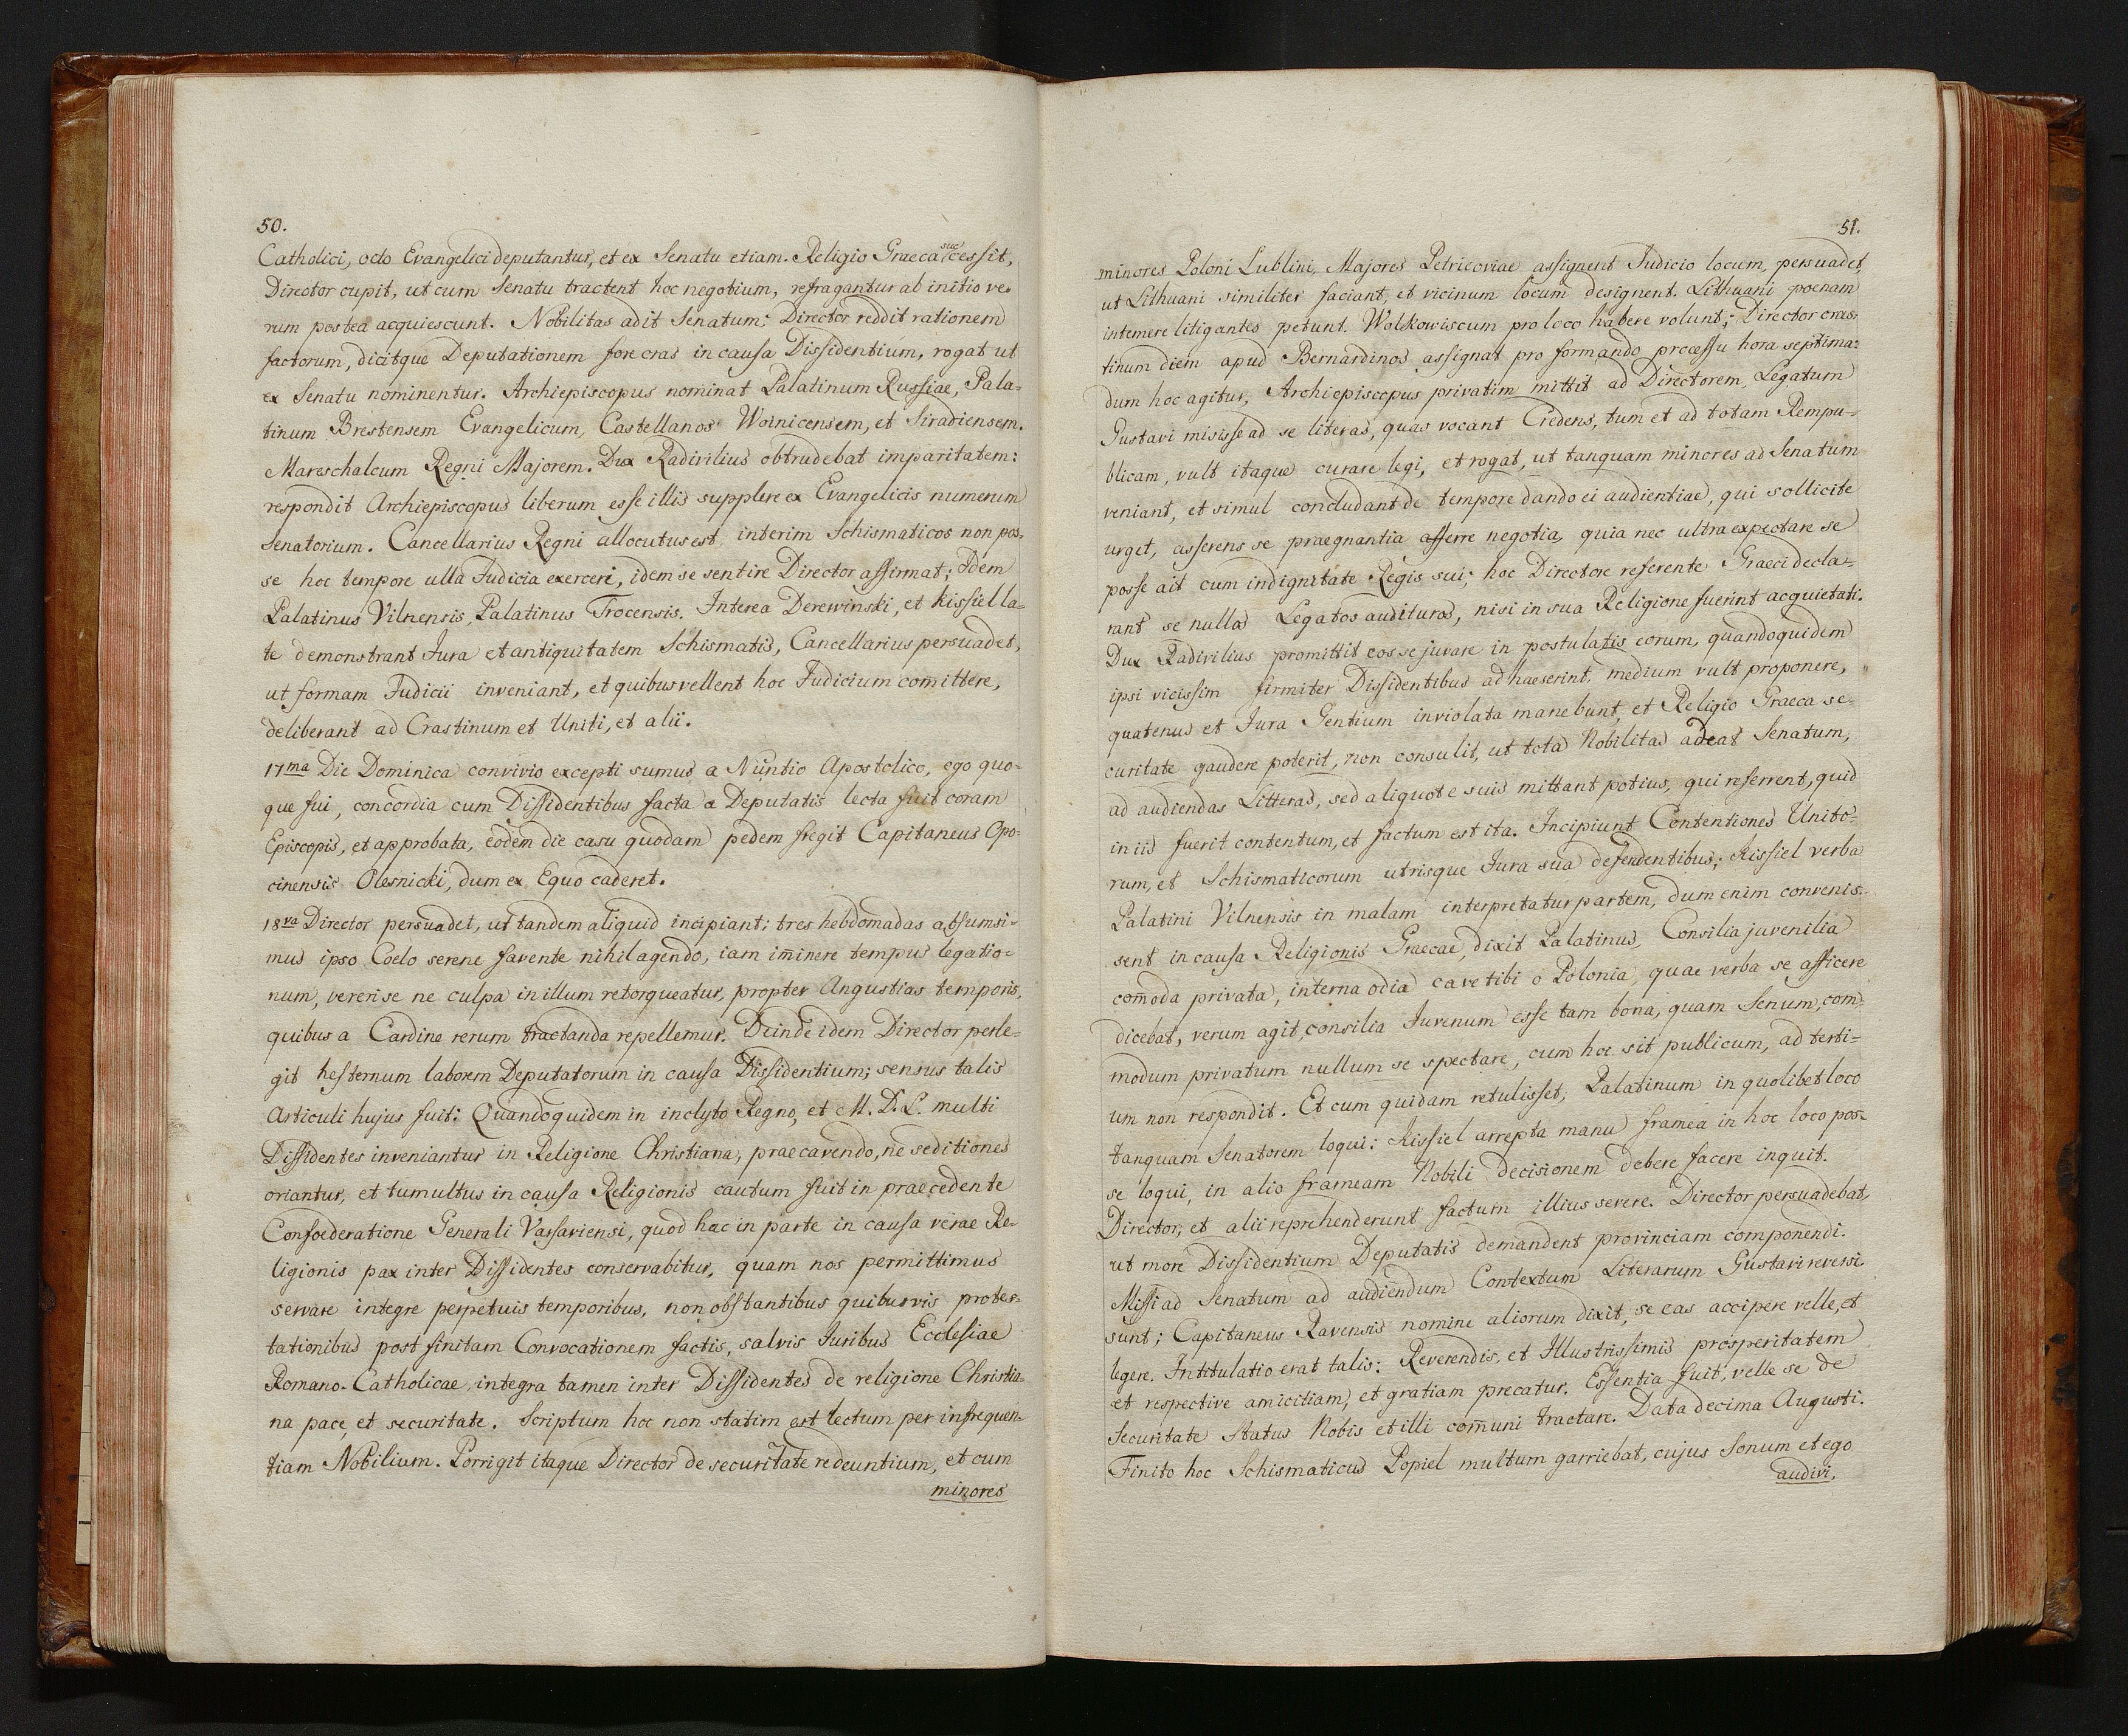 50.
Catholici, octo Evangelici deputantur, et ex Senatu etiam. Religio Graeca successit,
Director cupit, ut cum Senatu tractent hoc negotium, refragantur ab initio ve-
rum postea acquiescunt. Nobilitas adit Senatum; Director reddit rationem
factorum, dicitque Deputationem fore cras in causa Dissidentium, rogat ut
ex Senatu nominentur. Archiepiscopus nominat Palatinum Russiae, Pala-
tinum Brestensem Evangelicum, Castellanos Woinicensem, et Siradiensem.
Mareschalcum Regni Majorem. Dux Radivilius obtrudebat imparitatem:
respondit Archiepiscopus liberum esse illis supplere ex Evangelicis numerum
Senatorium. Cancellarius Regni allocutus est interim Schismaticos non pos-
se hoc tempore ulla Judicia exerceri, idem se sentire Director affirmat; Idem
Palatinus Vilnensis, Palatinus Trocensis. Interea Derewinski, et Kissiel la-
te demonstrant Jura et antiquitatem Schismatis, Cancellarius persuadet,
ut formam Judicii inveniant, et quibus vellent hoc Judicium comittere,
deliberant ad Crastinum et Uniti, et alii.
17ma Die Dominica convivio excepti sumus a Nuntio Apostolico, ego quo-
que fui, concordia cum Dissidentibus facta a Deputatis lecta fuit coram
Episcopis, et approbata, eodem die casu quodam pedem fregit Capitaneus Opo-
cinensis Olesnicki, dum ex Equo caderet.
18va Director persuadet, ut tandem aliquid incipiant; tres hebdomadas absumsi-
mus ipso Coelo serene favente nihil agendo, iam im̄inere tempus legatio-
num, vereri se ne culpa in illum retorqueatur, propter Angustias temporis,
quibus a Cardine rerum tractanda repellemur. Deinde idem Director perle-
git hesternum laborem Deputatorum in causa Dissidentium; sensus talis
Articuli hujus fuit: Quandoquidem in inclyto Regno, et M. D. L. multi
Dissidentes inveniantur in Religione Christiana, praecavendo, ne seditiones
oriantur, et tumultus in causa Religionis cautum fuit in praecedente
Confoederatione Generali Varsaviensi, quod hac in parte in causa verae Re-
ligionis pax inter Dissidentes conservabitur, quam nos permittimus
servare integre perpetuis temporibus, non obstantibus quibusvis protes-
tationibus post finitam Convocationem factis, salvis Juribus Ecclesiae
Romano-Catholicae, integra tamen inter Dissidentes de religione Christia-
na pace, et securitate. Scriptum hoc non statim est lectum per infrequen-
tiam Nobilium. Porrigit itaque Director de securitate redeuntium, et cum
minores
51.
minores Poloni Lublini, Majores Petricoviae assignent Judicio locum, persuadet,
ut Lithuani similiter faciant, et vicinum locum designent. Lithuani poenam
in temere litigantes petunt. Wolkowiscum pro loco habere volunt; Director cras-
tinum diem apud Bernardinos assignat pro formando processu hora septima:
dum hoc agitur, Archiepiscopus privatim mittit ad Directorem, Legatum
Gustavi misisse ad se literas, quas vocant Credens, tum et ad totam Rempu-
blicam, vult itaque curare legi, et rogat, ut tanquam minores ad Senatum
veniant, et simul concludant de tempore dando ei audientiae, qui sollicite
urget, asserens se praegnantia afferre negotia, quia nec ultra expectare se
posse ait cum indignitate Regis sui; hoc Directore referente Graeci decla-
rant se nullos Legatos audituros, nisi in sua Religione fuerint acquietati.
Dux Radivilius promittit eos se juvare in postulatis eorum, quandoquidem
ipsi vicissim firmiter Dissidentibus adhaeserint, medium vult proponere,
quatenus et Jura Gentium inviolata manebunt, et Religio Graeca se-
curitate gaudere poterit, non consulit, ut tota Nobilitas adeat Senatum,
ad audiendas Litteras, sed aliquot e suis mittant potius, qui referrent, quid
in iis fuerit contentum, et factum est ita. Incipiunt Contentiones Unito-
rum, et Schismaticorum utrisque Jura sua defendentibus; Kissiel verba
Palatini Vilnensis in malam interpretatur partem, dum enim convenis-
sent in causa Religionis Graecae, dixit Palatinus, Consilia juvenilia
com̄oda privata, interna odia cave tibi o Polonia, quae verba se afficere
dicebat, verum agit, consilia Juvenum esse tam bona, quam Senum, com-
modum privatum nullum se spectare, cum hoc sit publicum, ad terti-
um non respondit. Et cum quidam retulisset, Palatinum in quolibet loco
tanquam Senatorem loqui: Kissiel arrepta manu framea in hoc loco pos-
se loqui, in alio frameam Nobili decisionem debere facere inquit.
Director, et alii reprehenderunt factum illius severe. Director persuadebat,
ut more Dissidentium Deputatis demandent provinciam componendi.
Missi ad Senatum ad audiendum Contextum Literarum Gustavi reversi
sunt; Capitaneus Ravensis nomine aliorum dixit, se eas accipere velle, et
legere. Intitulatio erat talis: Reverendis, et Illustrissimis prosperitatem
et respective amicitiam, et gratiam precatur. Essentia fuit, velle se de
Securitate Status Nobis et illi com̄uni tractare. Data decima Augusti.
Finito hoc Schismaticus Popiel multum garriebat, cujus Sonum et ego
audivi,